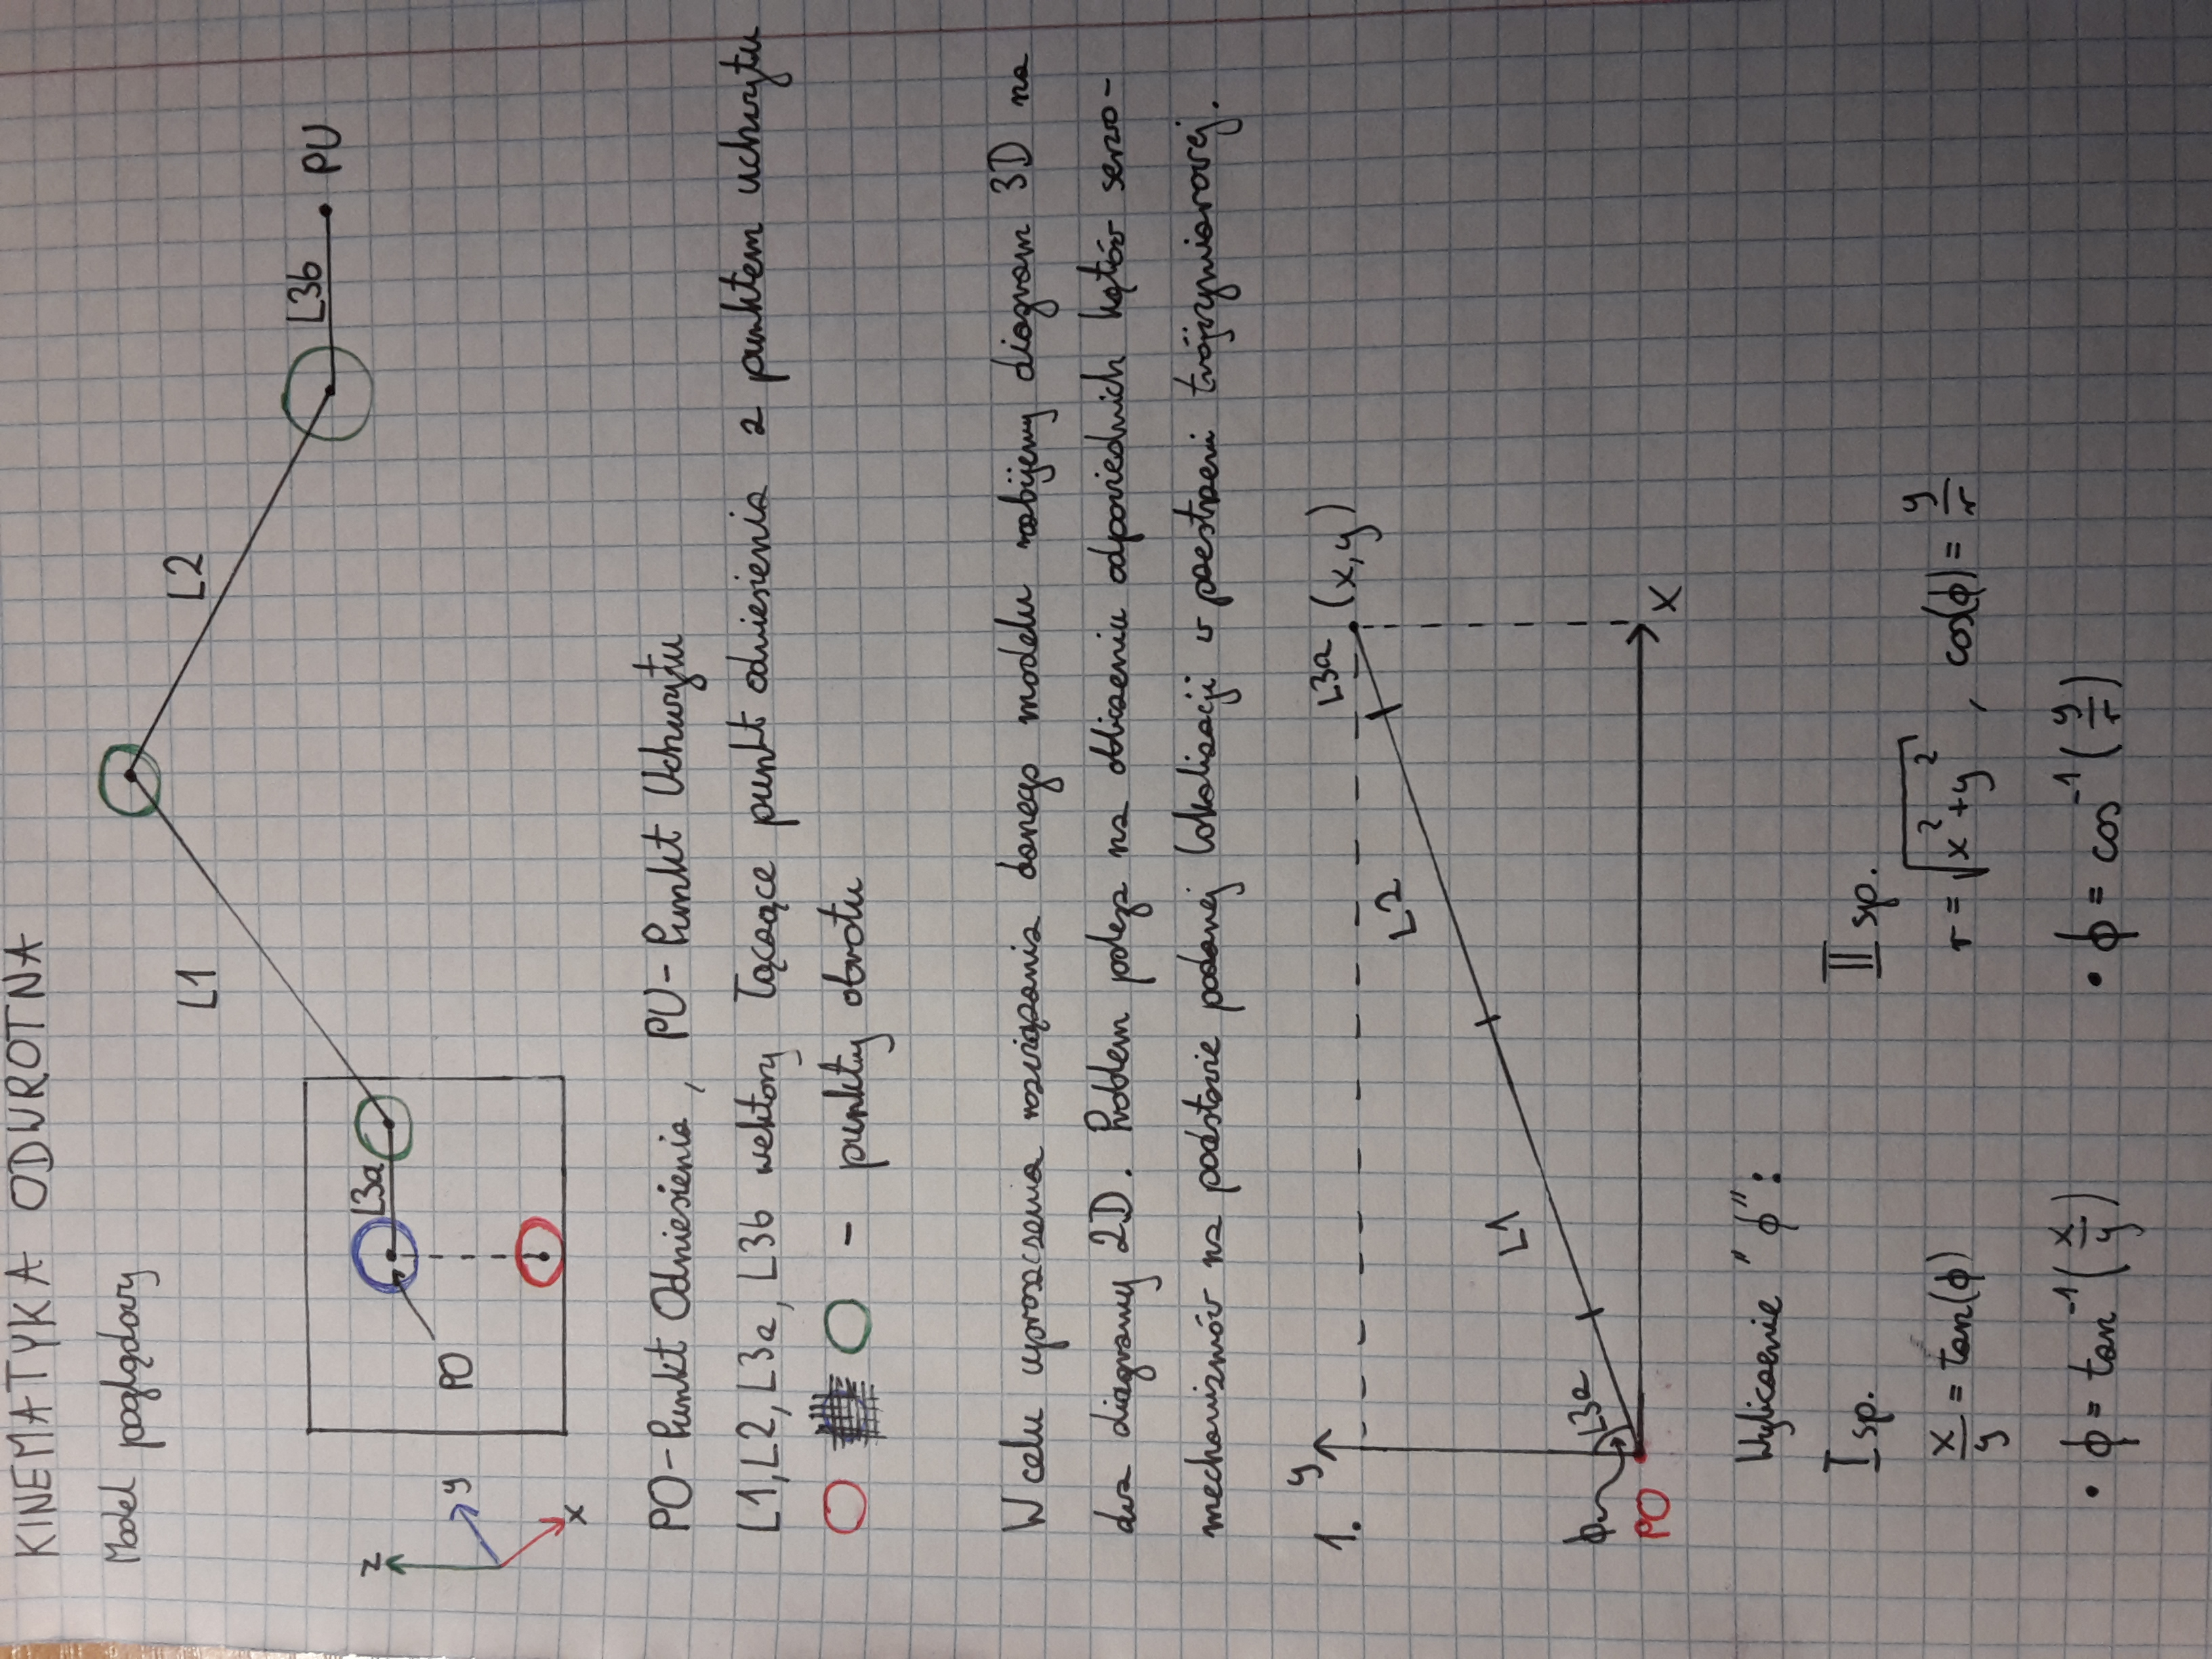 KINEMATYKA ODWROTNA
Model poglądowy
L1
L2
L3b
PU
L3a
PO
z
y
x
PO-Punkt Odniesienia, PU-Punkt Uchwytu
L1, L2, L3a, L3b wektory łączące punkt odniesienia z punktem uchwytu
- punkty obrotu
W celu uproszczenia rozwiązania danego modelu rozbijemy diagram 3D na
dwa diagramy 2D. Problem polega na obliczeniu odpowiednich kątów serwo-
mechanizmów na podstawie podanej lokalizacji w przestrzeni trójwymiarowej.
1.
y
L3a
(x,y)
L2
L1
ϕ
L3a
PO
x
Wyliczenie "ϕ":
I sp.
II sp.
x/y = tan(ϕ)
r = √(x²+y²), cos(ϕ) = y/r
• ϕ = tan⁻¹(x/y)
• ϕ = cos⁻¹(y/r)